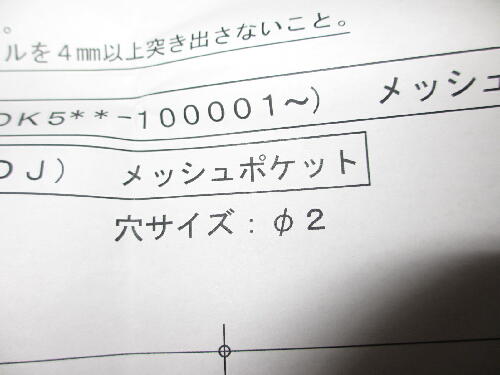 。
ルを4mm以上突き出さないこと。
DK5**-100001~) メッシュ
DJ) メッシュポケット
穴サイズ:φ2